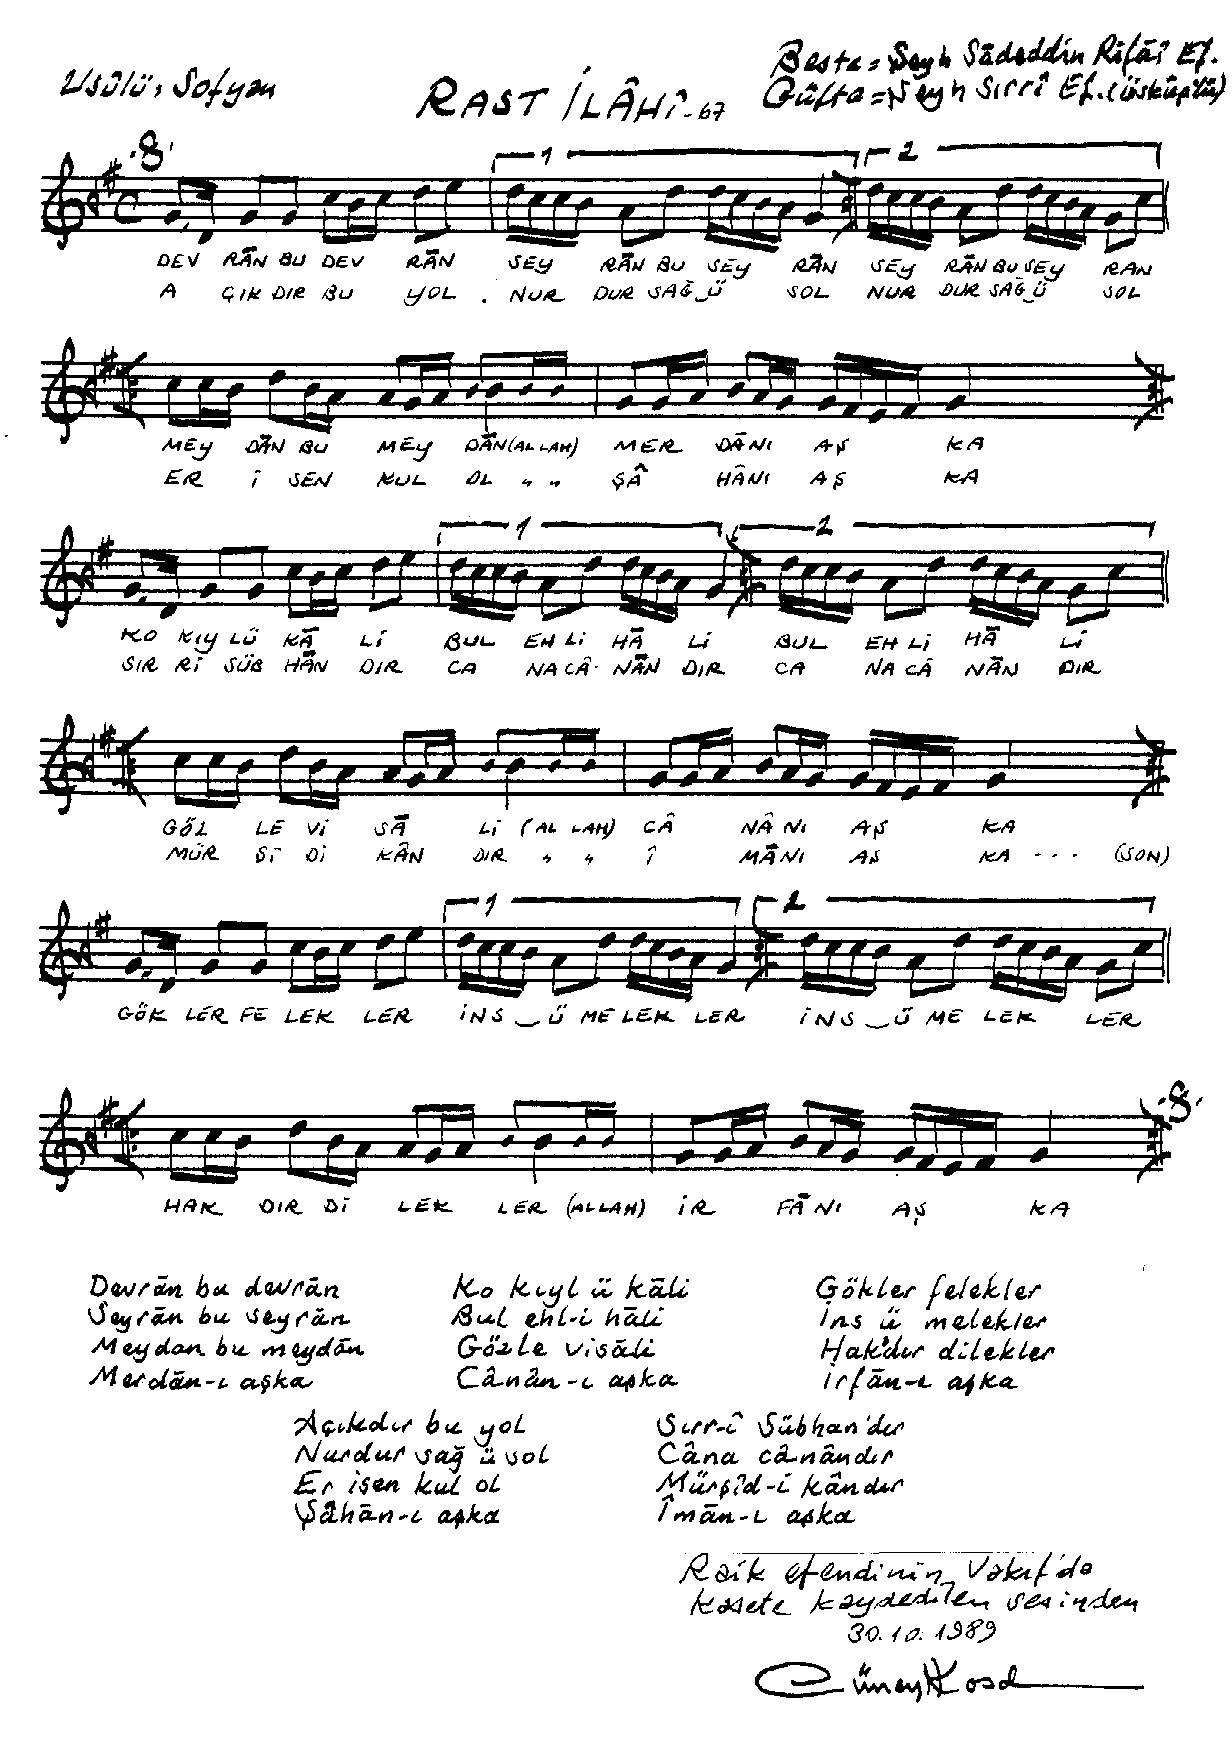 Usûlü: Sofyan
RAST İLÂHÎ-67
Beste = Şeyh Sâdeddin Rifâî Ef.
Güfte = Şeyh Sırrî Ef. (Üsküplü)
1 2
DEV RÂN BU DEV RÂN SEY RÂN BU SEY RÂN SEY RÂN BU SEY RAN
A ÇIK DIR BU YOL . NUR DUR SAĞ_Ü SOL NUR DUR SAĞ_Ü SOL
MEY DÂN BU MEY DÂN (ALLAH) MER DÂNI AŞ KA
ER İ SEN KUL OL " " ŞÂ HÂNI AŞ KA
1 2
KO KIY LÜ KĀ Lİ BUL EH Lİ HĀ Lİ BUL EH Lİ HĀ Lİ
SIR RÎ SÜB HĀN DIR CA NA CÂ- NĀN DIR CA NA CÂ NĀN DIR
GÖZ LE Vİ SĀ Lİ (AL LAH) CÂ NÂ NI AŞ KA
MÜR ŞÎ Dİ KÂN DIR " " Î MĀNI AŞ KA - - - (SON)
1 2
GÖK LER FE LEK LER İNS_Ü ME LEK LER İNS_Ü ME LEK LER
HAK DIR Dİ LEK LER (ALLAH) İR FĀNI AŞ KA
Devrān bu devrān
Seyrān bu seyrān
Meydan bu meydān
Merdān-ı aşka
Ko kıyl ü kāli
Bul ehl-i hāli
Gözle visāli
Cânân-ı aşka
Gökler felekler
İns ü melekler
Hak'dır dilekler
İrfān-ı aşka
Açıkdır bu yol
Nurdur sağ ü sol
Er isen kul ol
Şâhān-ı aşka
Sırr-î Sübhan'dır
Câna cânândır
Mürşîd-i kândır
Îmān-ı aşka
Raik efendinin Vakıf'da
kasete kaydedilen sesinden
30.10.1989